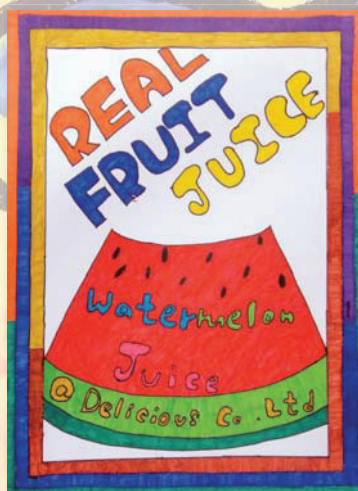 REAL
FRUIT
JUICE
Watermelon
Juice
@ Delicious Co. Ltd